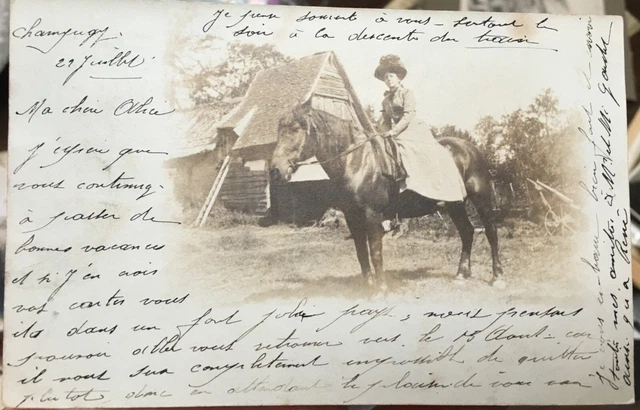 Je pense souvent à vous - surtout le
soir à la descente du train
29 Juillet
Ma chère Alice
J'espère que
vous continuez
à passer de
bonnes vacances
et si j'en crois
vos cartes vous
êtes dans un fort joli pays, nous pensons
pouvoir aller vous retrouver vers le 15 Août - car
il nous sera complètement impossible de quitter
plus tôt donc en attendant le plaisir de vous voir
toutes mes amitiés à
ainsi qu'à René